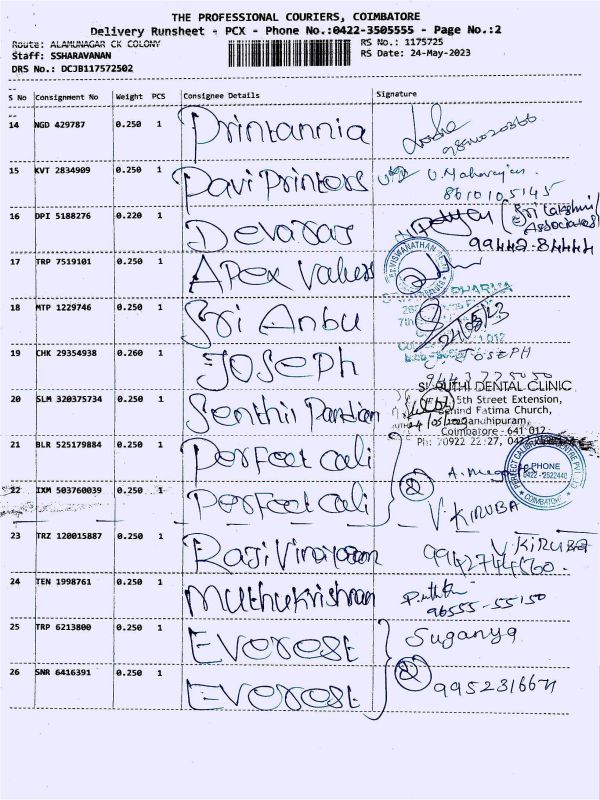 THE PROFESSIONAL COURIERS, COIMBATORE
Delivery Runsheet - PCX - Phone No.:0422-3505555 - Page No.:2
Route: ALAMUNAGAR CK COLONY
RS No.: 1175725
Staff: SSHARAVANAN
RS Date: 24-May-2023
DRS No.: DCJB117572502
S No Consignment No Weight PCS Consignee Details Signature
14 NGD 429787 0.250 1 Printannia
15 KVT 2834909 0.250 1 Pavi Printers U. Maharajan.
8610105145
16 DPI 5188276 0.220 1 Devaras (Sri Lakshmi
Associates)
99442-84444
17 TRP 7519101 0.250 1 Apex Values
18 MTP 1229746 0.250 1 Sri Anbu
24/05/23
19 CHK 29354938 0.260 1 JOSEPH JOSEPH
20 SLM 320375734 0.250 1 Senthil Pandian DENTAL CLINIC
5th Street Extension,
Behind Fatima Church,
Gandhipuram,
Coimbatore - 641 012
Ph: 70922 22 27, 0422
21 BLR 525179884 0.250 1 Perfect cali
PHONE
0422-2522440
COIMBATORE
22 IXM 503760039 0.250 1 Perfect cali (2) V. KIRUBA
23 TRZ 120015887 0.250 1 V. KIRUBA
24 TEN 1998761 0.250 1 Muthukrishnan
96555-55150
25 TRP 6213800 0.250 1 Everest Suganya
26 SNR 6416391 0.250 1 Everest (2)